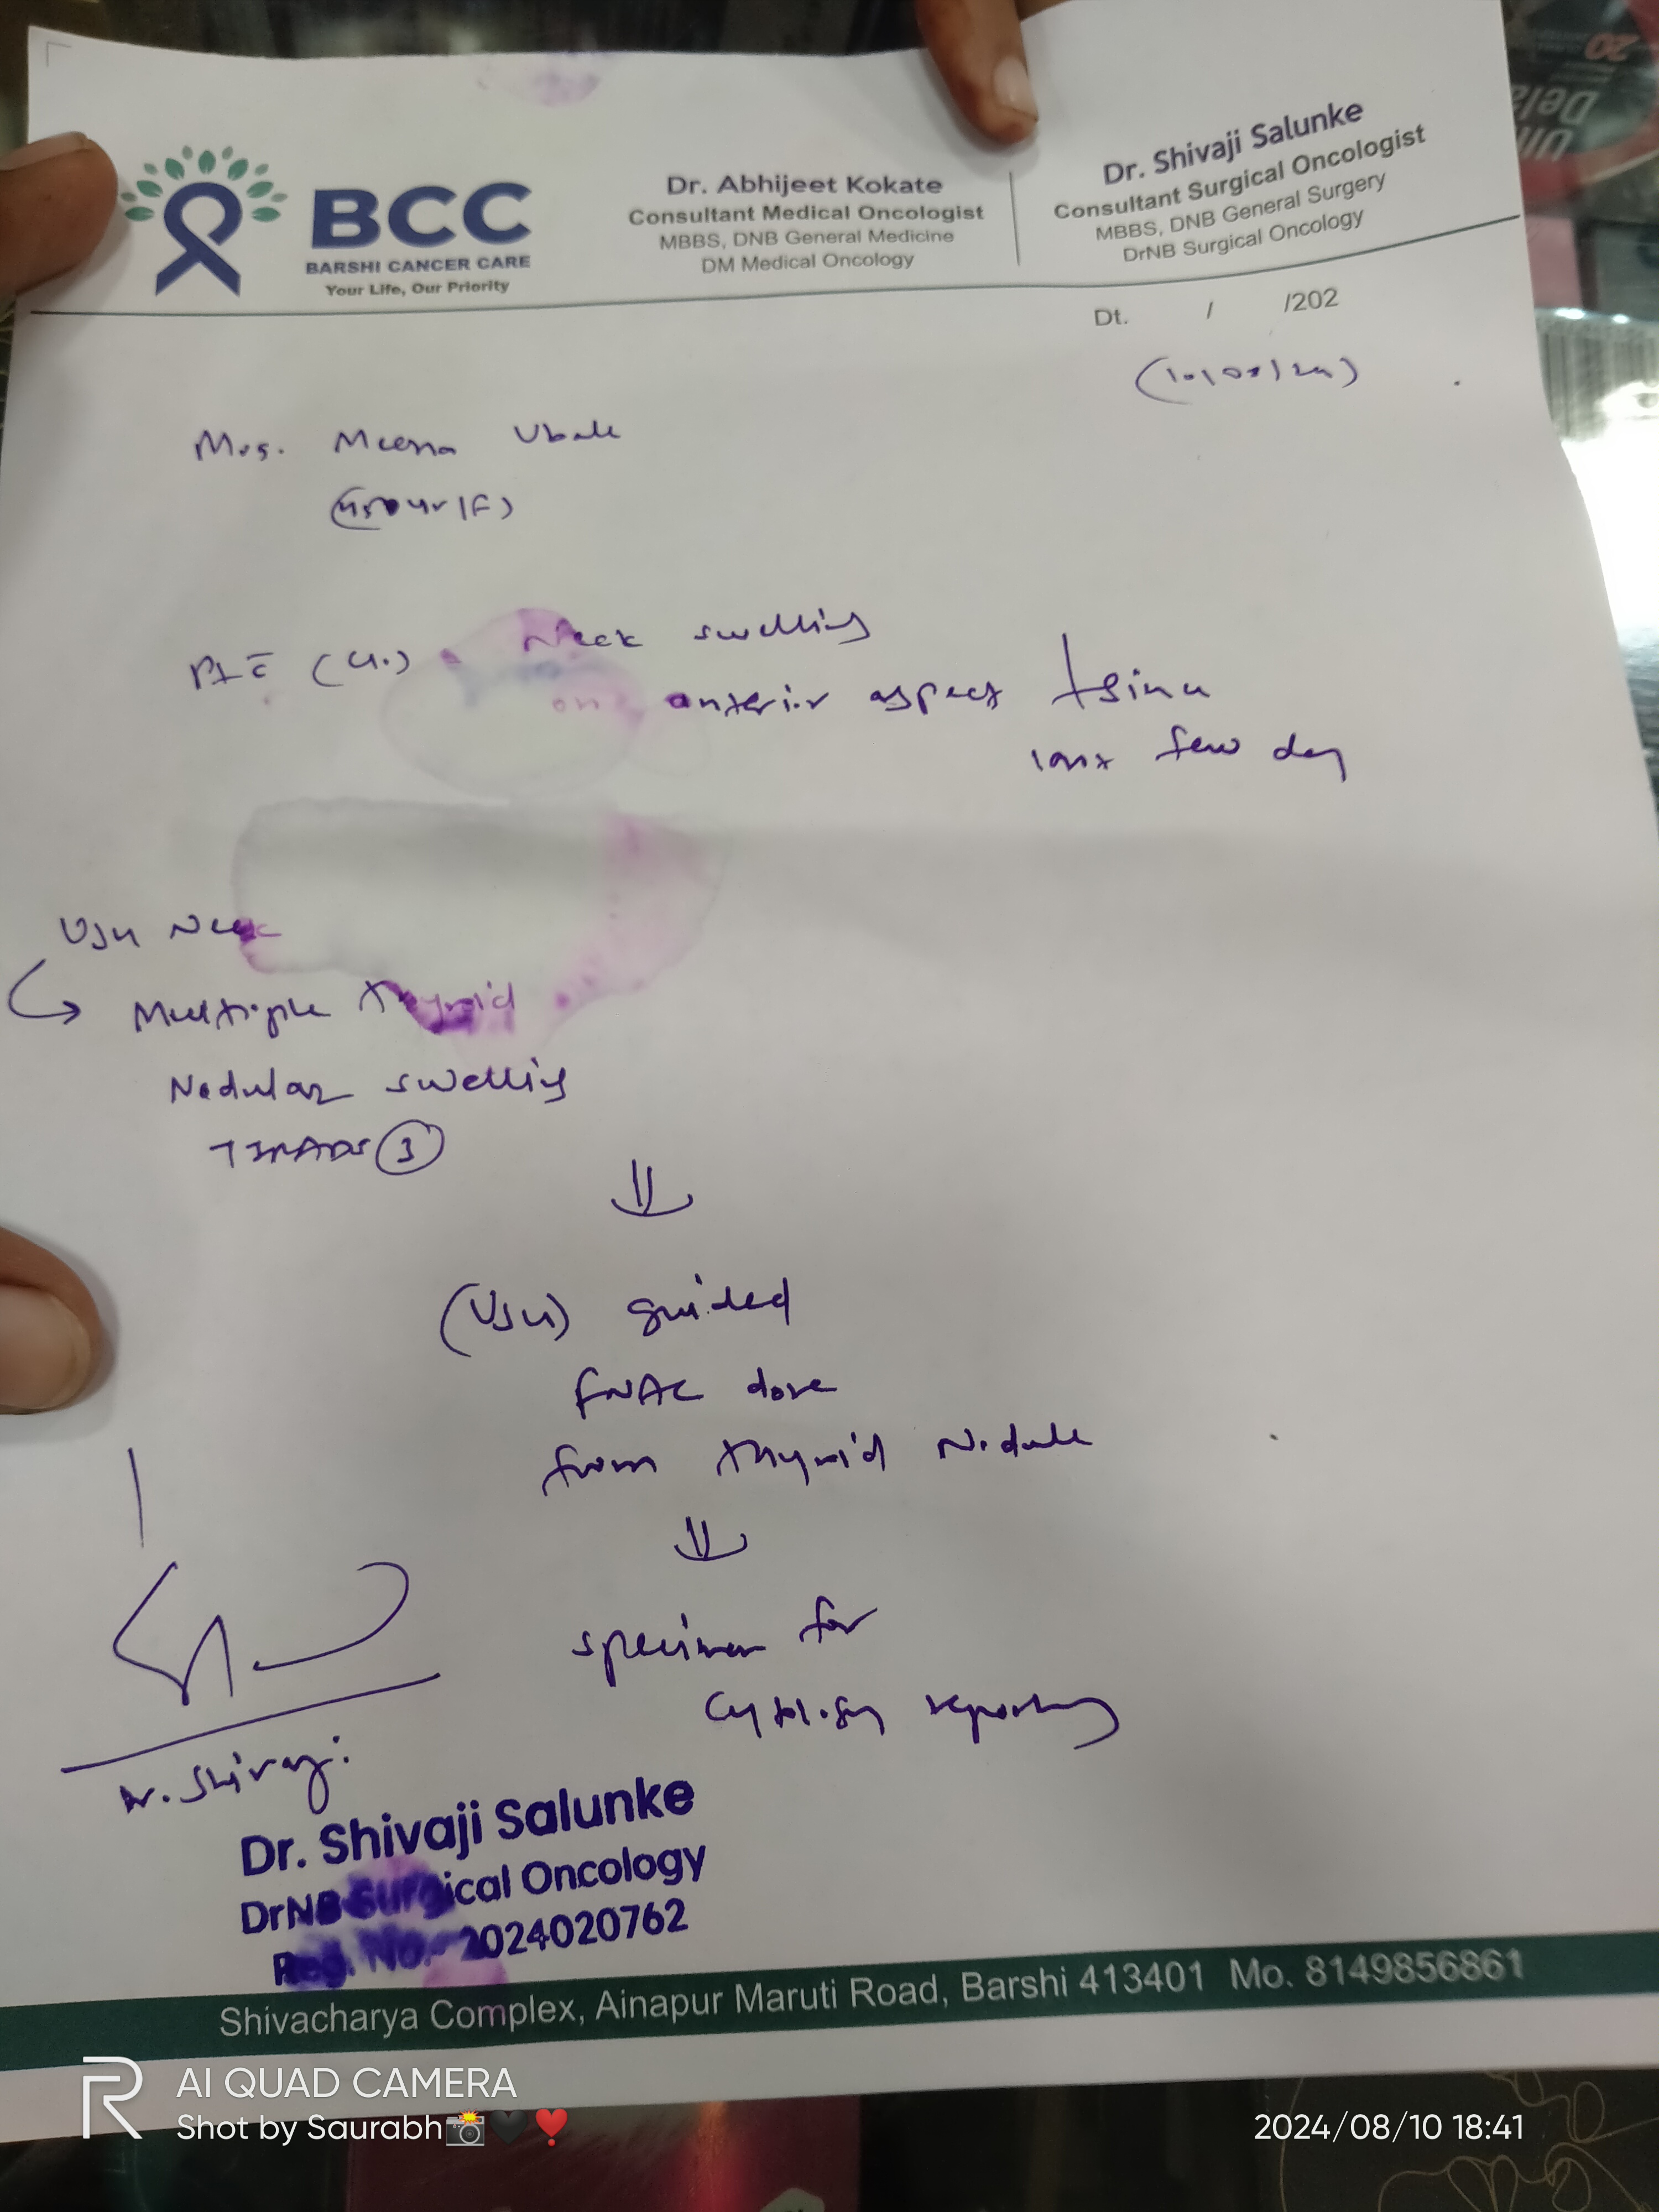 BCC
BARSHI CANCER CARE
Your Life, Our Priority
Dr. Abhijeet Kokate
Consultant Medical Oncologist
MBBS, DNB General Medicine
DM Medical Oncology
Dr. Shivaji Salunke
Consultant Surgical Oncologist
MBBS, DNB General Surgery
DrNB Surgical Oncology
Dt. / /202
(10/08/24)
Mrs. Meena Ubale
yr/F)
Neck swelling
on anterior aspect since
last few day
USG Neck
Multiple thyroid
Nodular swelling
TIRADS 3
(USG) guided
FNAC done
from thyroid Nodule
specimen for
cytology reporting
Dr. Shivaji
Dr. Shivaji Salunke
DrNB Surgical Oncology
Reg. No.- 2024020762
Shivacharya Complex, Ainapur Maruti Road, Barshi 413401 Mo. 8149856861
AI QUAD CAMERA
Shot by Saurabh📸🖤❣️
2024/08/10 18:41